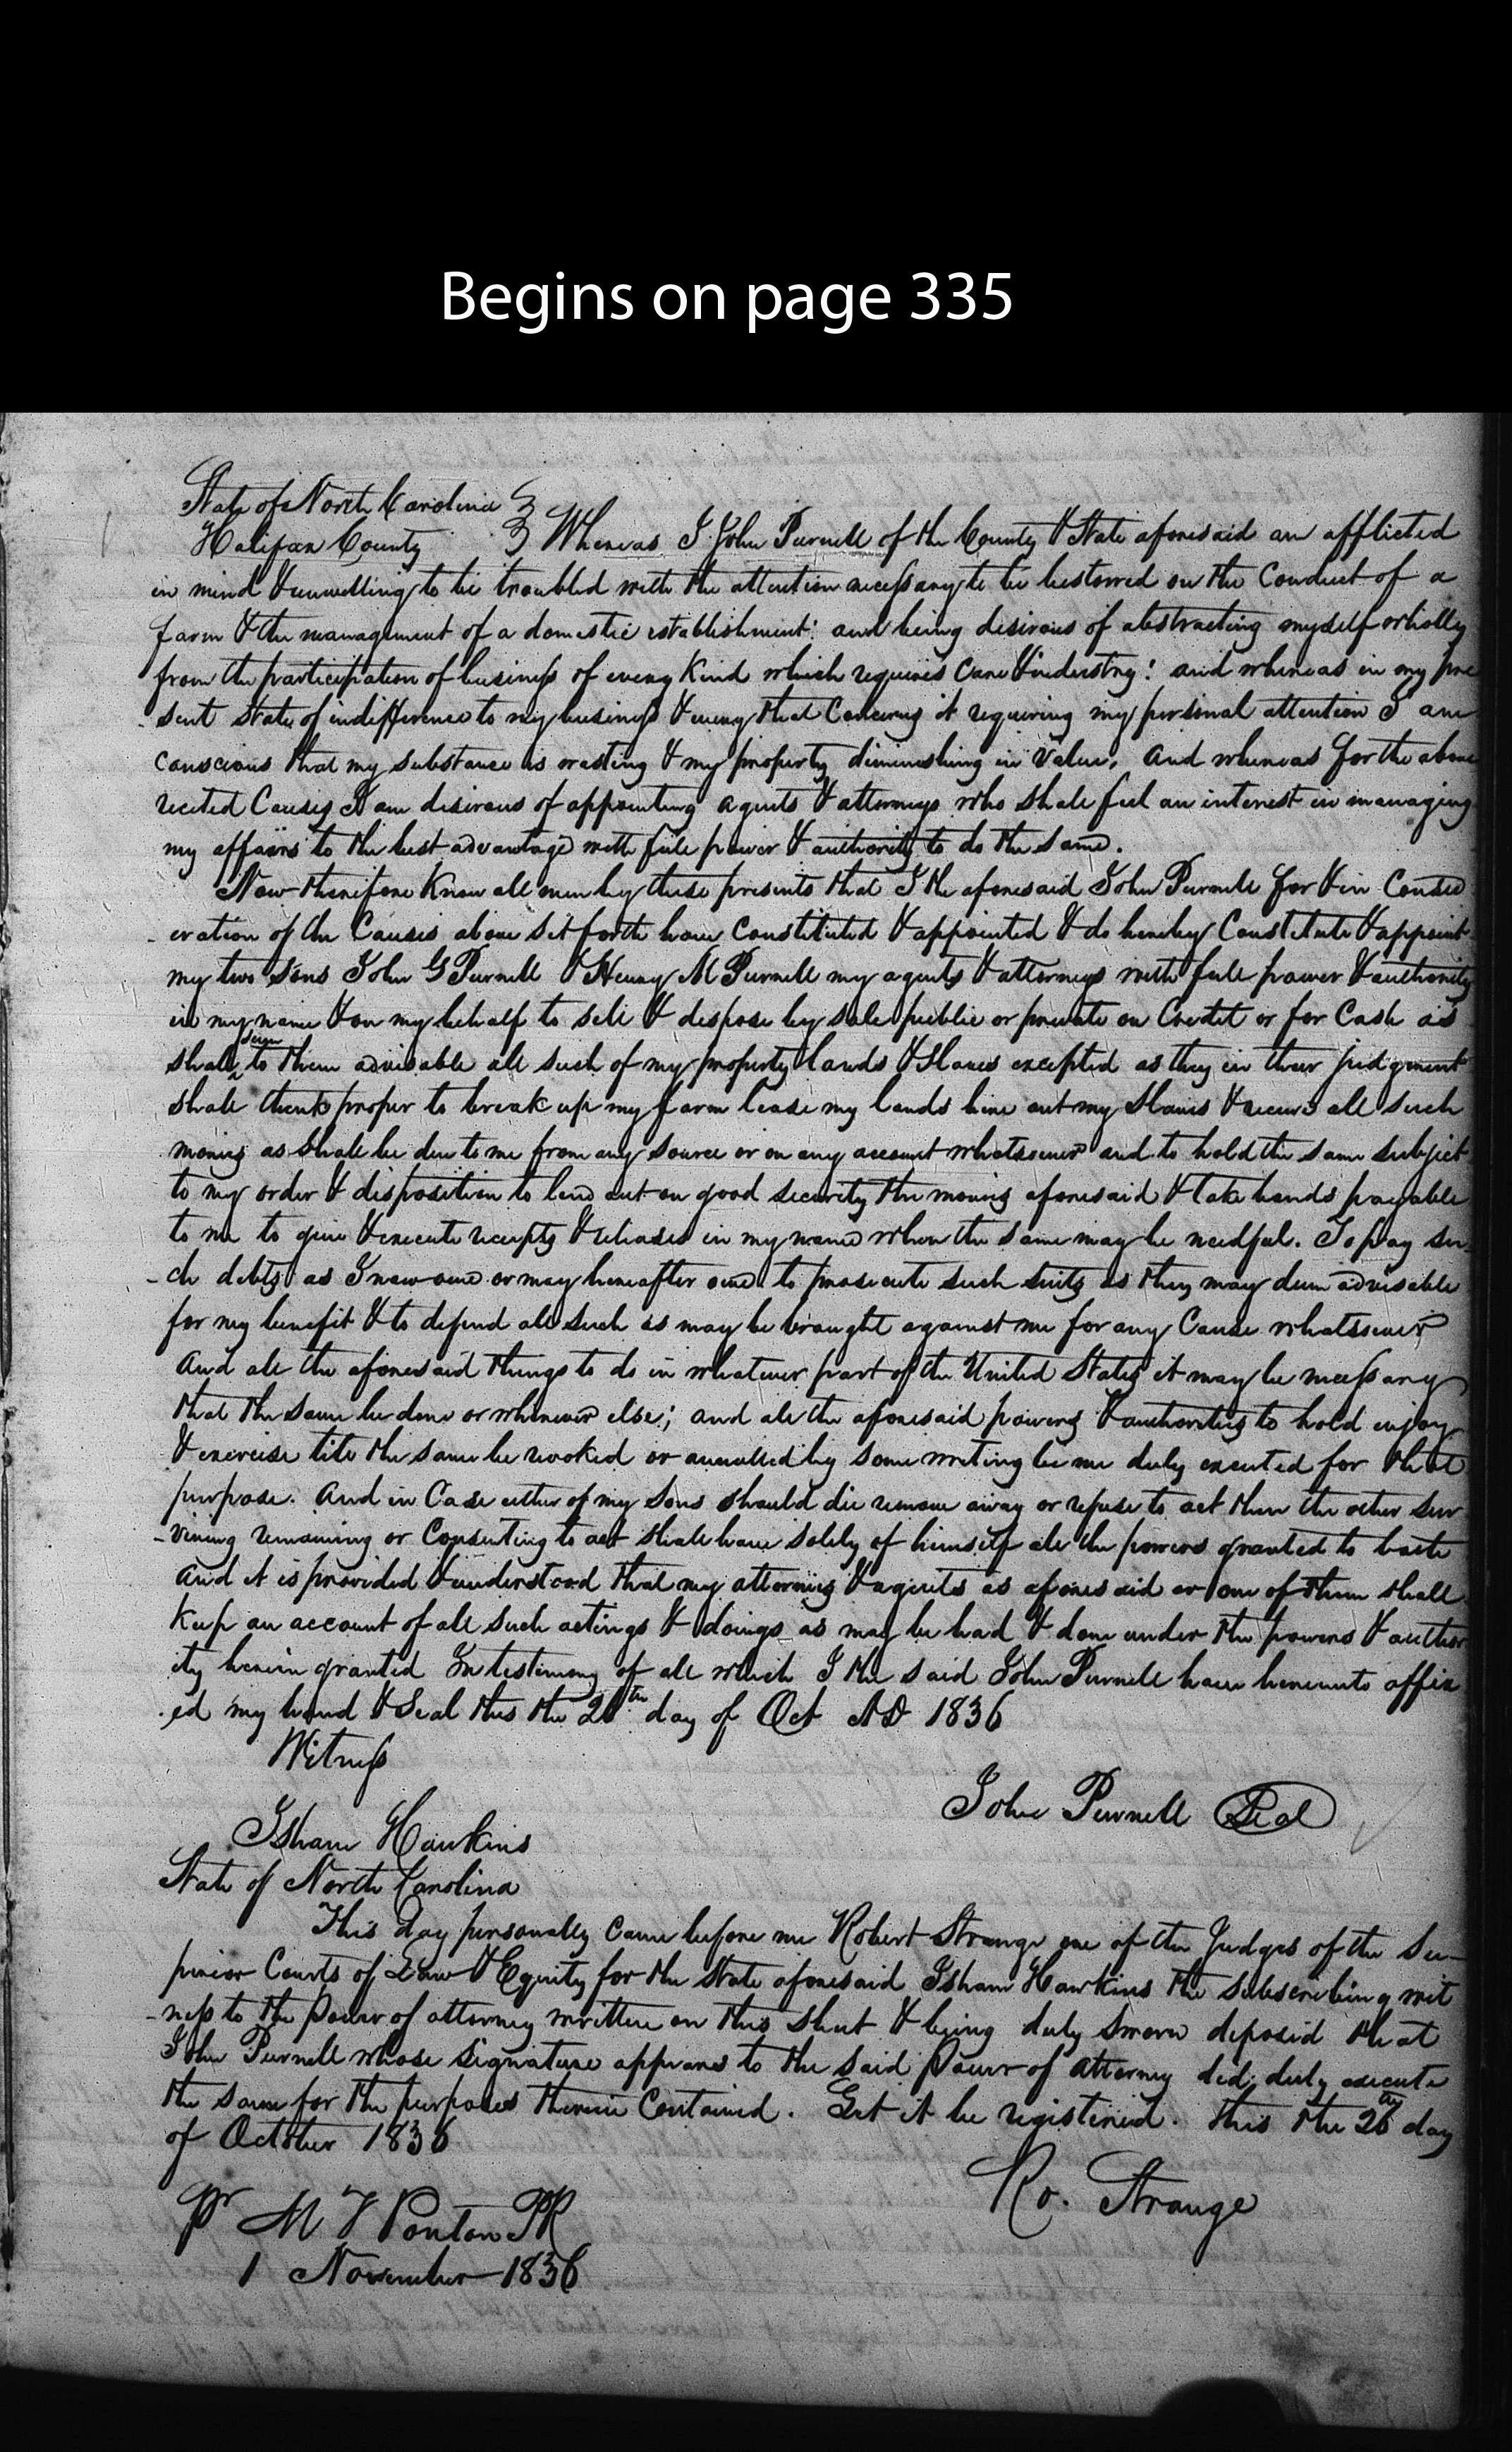 Begins on page 335
State of North Carolina
Halifax County Whereas I John Purnell of the County & State aforesaid am afflicted
in mind & unwilling to be troubled with the attention necessary to be bestowed on the Conduct of a
farm & the management of a domestic establishment: and being desirous of abstracting myself wholly
from the participation of business of every kind which requires care & industry: and whereas in my pre
sent state of indifference to my business & every that Concerns it requiring my personal attention I am
conscious that my substance is wasting & my property diminishing in Value. And whereas for the above
recited Causes I am desirous of appointing agents & attorneys who shall feel an interest in managing
my affairs to the best advantage with full power & authority to do the same.
Now therefore Know all men by these presents that I the aforesaid John Purnell for & in Consid
-eration of the Causes above set forth have Constituted & appointed & do hereby Constitute & appoint
my two sons John G Purnell & Henry M Purnell my agents & attorneys with full power & authority
in my name & on my behalf to sell & dispose by sale public or private on Credit or for Cash as
shall seem to them advisable all such of my property lands & Slaves excepted as they in their judgment
shall think proper to break up my farm lease my lands hire out my Slaves & receive all such
monies as shall be due to me from any source or on any account whatsoever and to hold the same subject
to my order & disposition to lend out on good security the monies aforesaid & take bonds payable
to me to give & execute receipts & releases in my name when the same may be needful. To pay su
-ch debts as I now owe or may hereafter owe to prosecute such suits as they may deem advisable
for my benefit & to defend all such as may be brought against me for any Cause whatsoever
And all the aforesaid things to do in whatever part of the United States it may be necessary
that the same be done or wherever else; and all the aforesaid powers & authorities to hold enjoy
& exercise till the same be revoked or annulled by some writing be me duly executed for that
purpose. And in Case either of my Sons should die remove away or refuse to act then the other sur
-viving remaining or Consenting to act shall have solely of himself all the powers granted to both
And it is provided & understood that my attornies & agents as aforesaid or one of them shall
Keep an account of all such actings & doings as may be had & done under the powers & author
ity herein granted In testimony of all which I the said John Purnell have hereunto affix
-ed my hand & Seal this the 26th day of Oct AD 1836
Witness
John Purnell Seal
Isham Hawkins
State of North Carolina
This day personally came before me Robert Strange one of the Judges of the Su-
perior Courts of Law & Equity for the State aforesaid Isham Hawkins the subscribing wit
-ness to the Power of attorney written on this sheet & being duly sworn deposed that
John Purnell whose signature appears to the said Power of Attorney did duly execute
the same for the purposes therein Contained. Let it be registered. this the 26th day
of October 1836
Ro. Strange
Pr M T Ponton PR
1 November 1836